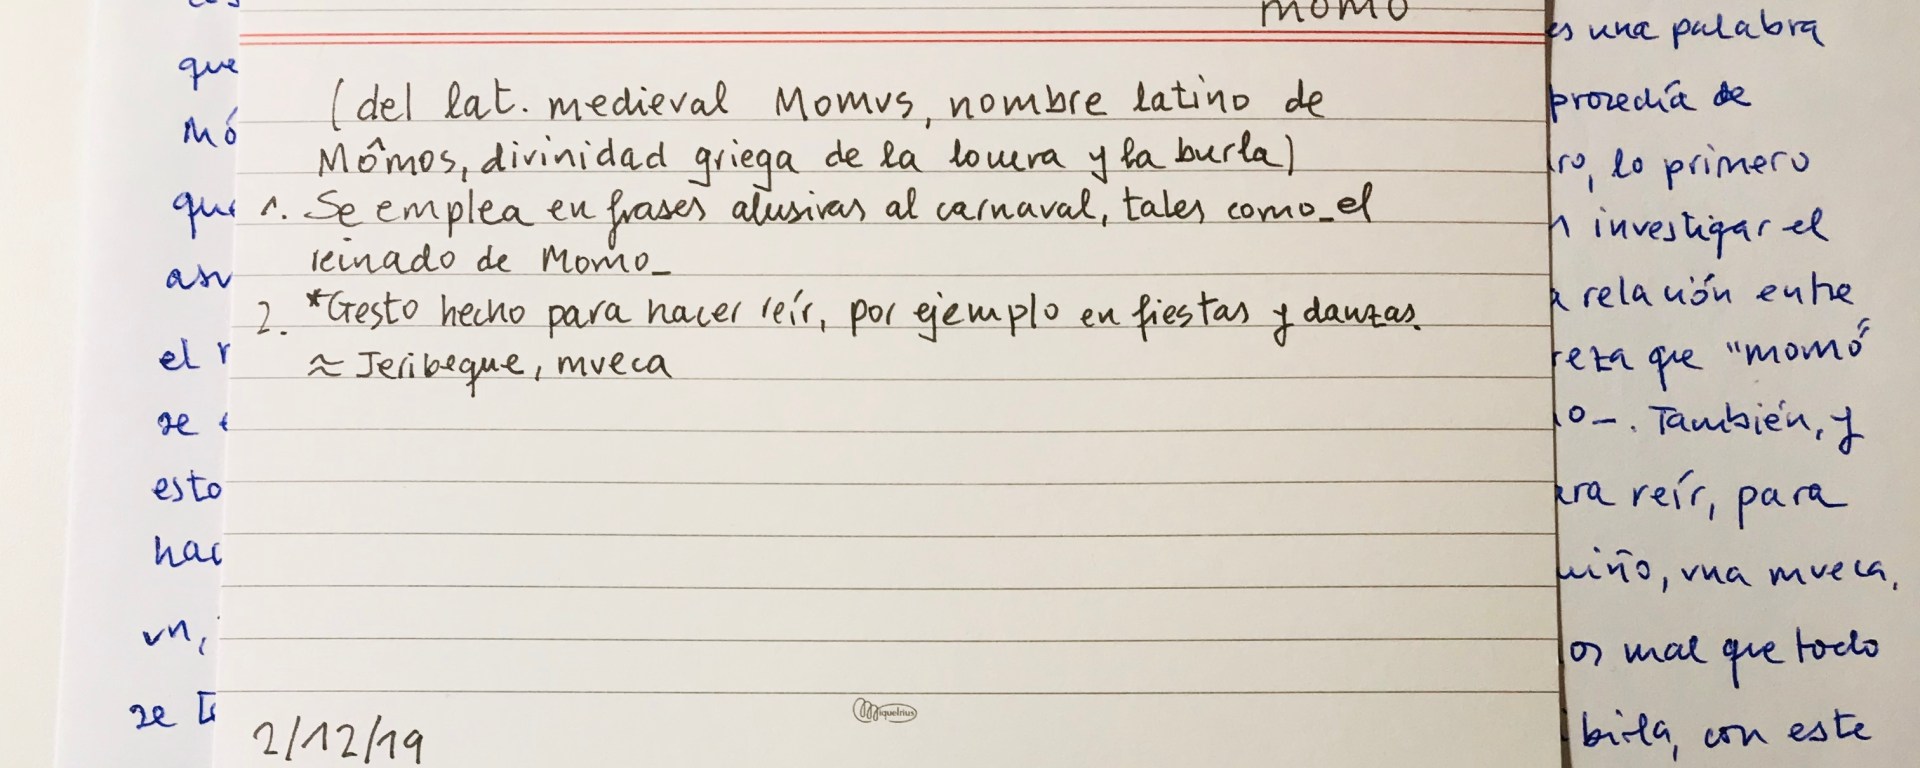 momo
(del lat. medieval Momus, nombre latino de
Mômos, divinidad griega de la locura y la burla)
1. Se emplea en frases alusivas al carnaval, tales como_el
reinado de Momo_
2. *Gesto hecho para hacer reír, por ejemplo en fiestas y danzas.
≈ Jeribeque, mueca
Miquelrius
2/12/19
que
Mó
que
el
se
esto
un,
se
es una palabra
procedía de
, lo primero
investigar el
relación entre
que "momó"
. También, y
reír, para
, una mueca,
mal que todo
, con este